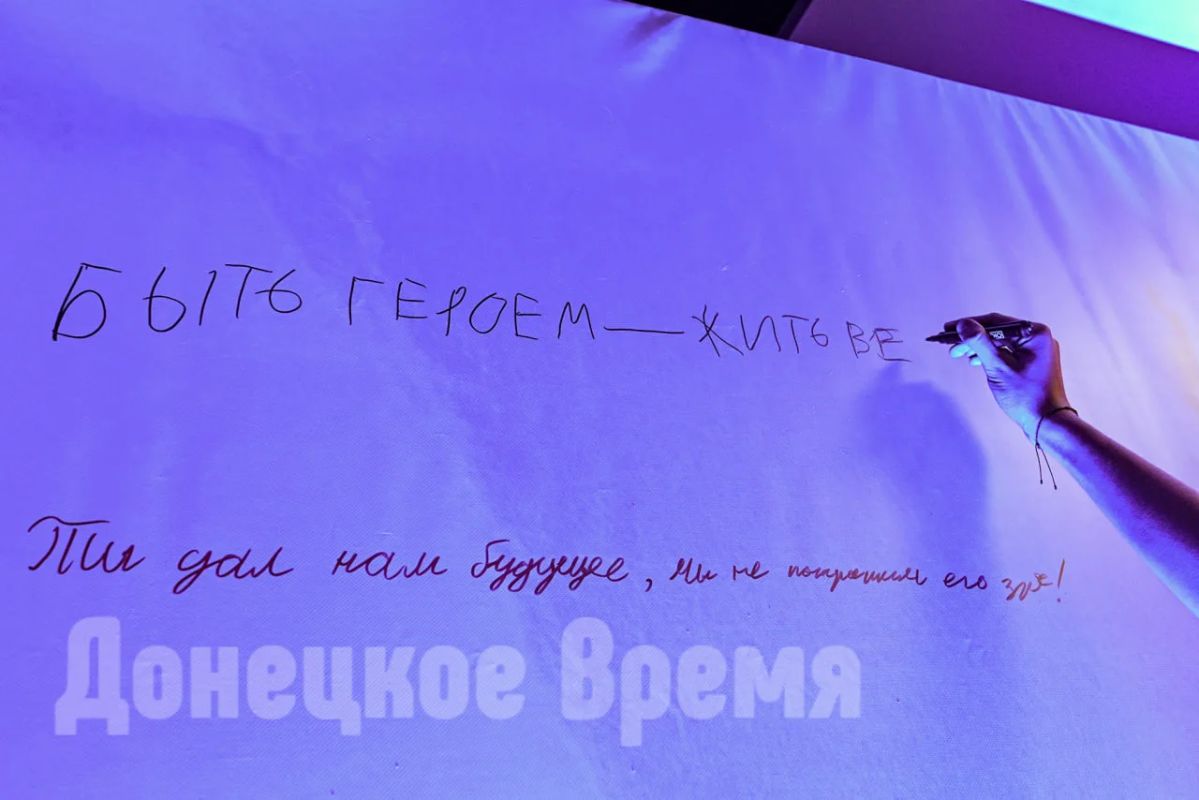 БЫТЬ ГЕРОЕМ — ЖИТЬ ВЕ
Ты дал нам будущее, мы не потратим его зря!
Донецкое Время